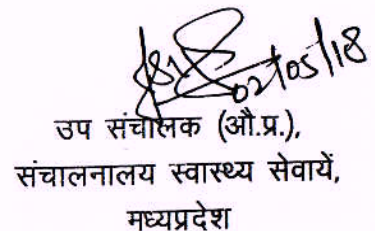 02/05/18
उप संचालक (औ.प्र.),
संचालनालय स्वास्थ्य सेवायें,
मध्यप्रदेश